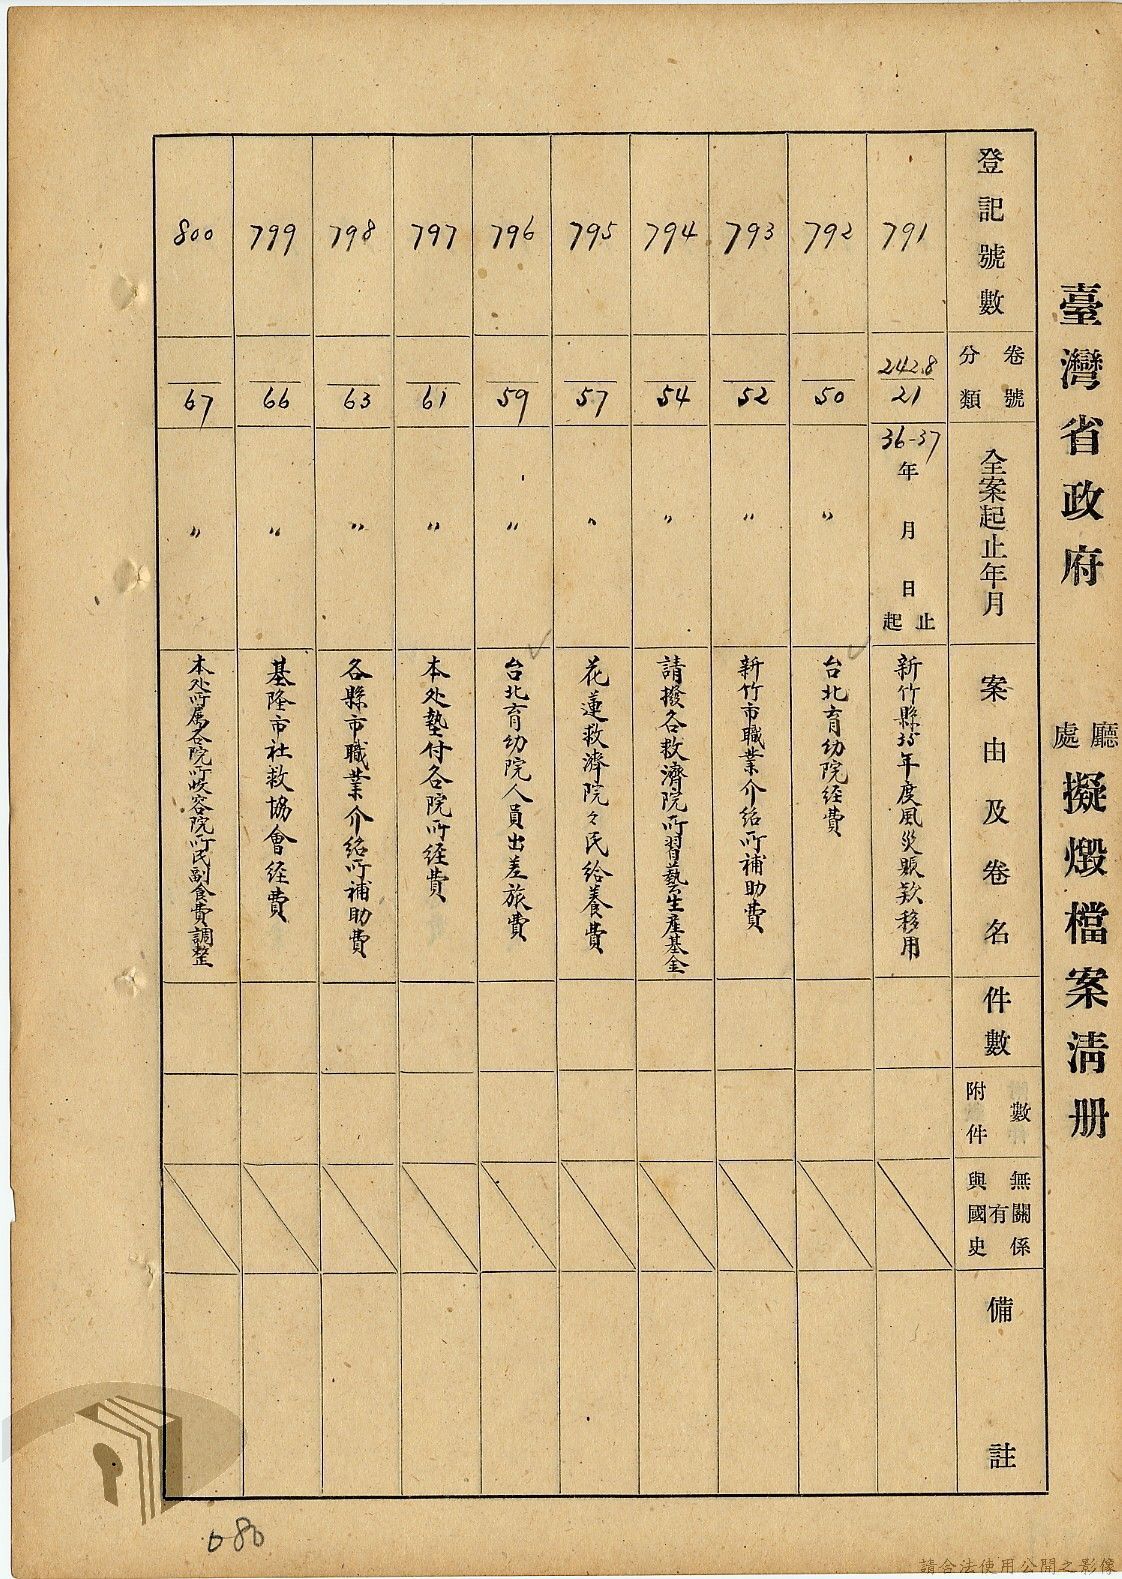 臺灣省政府 廳處 擬燬檔案清册
登記號數
分類 卷號
全案起止年月
案由及卷名
件數
附件 數
與國史 有 無關係
備註
791
242.8
21
36-37
年 月 日
起 止
新竹縣35年度風災賑款移用
792
50
〃
台北育幼院経費
793
52
〃
新竹市職業介紹所補助費
794
54
〃
請撥各救濟院所習藝生產基金
795
57
〃
花蓮救濟院々民給養費
796
59
〃
台北育幼院人員出差旅費
797
61
〃
本处墊付各院所経費
798
63
〃
各縣市職業介紹所補助費
799
66
〃
基隆市社救協會経費
800
67
〃
本处所属各院所收容院所民副食費調整
080
請合法使用公開之影像